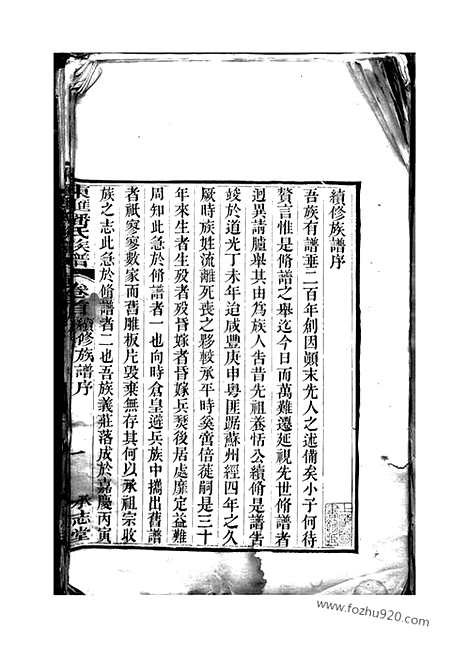 續修族譜序
吾族有譜垂二百年創因顚末先人之述備矣小子何待
贅言惟是脩譜之舉迄今日而萬難遷延視先世脩譜者
迥異請臚舉其由為族人告昔先祖養恬公續脩是譜告
竣於道光丁未年迨咸豐庚申粤匪踞蘇州經四年之久
厥時族姓流離死喪之夥較承平時奚啻倍徙嗣是三十
年來生者生歿者歿昏者昏嫁者嫁兵燹後居處靡定益難
周知此急於脩譜者一也向時倉皇避兵族中攜出舊譜
者祇寥寥數家而舊雕板片毀棄無存其何以承祖宗收
族之志此急於脩譜者二也吾族義莊落成於嘉慶丙寅
東匯潘氏族譜
卷首
續修族譜序
一
承志堂
www.fozhu920.com